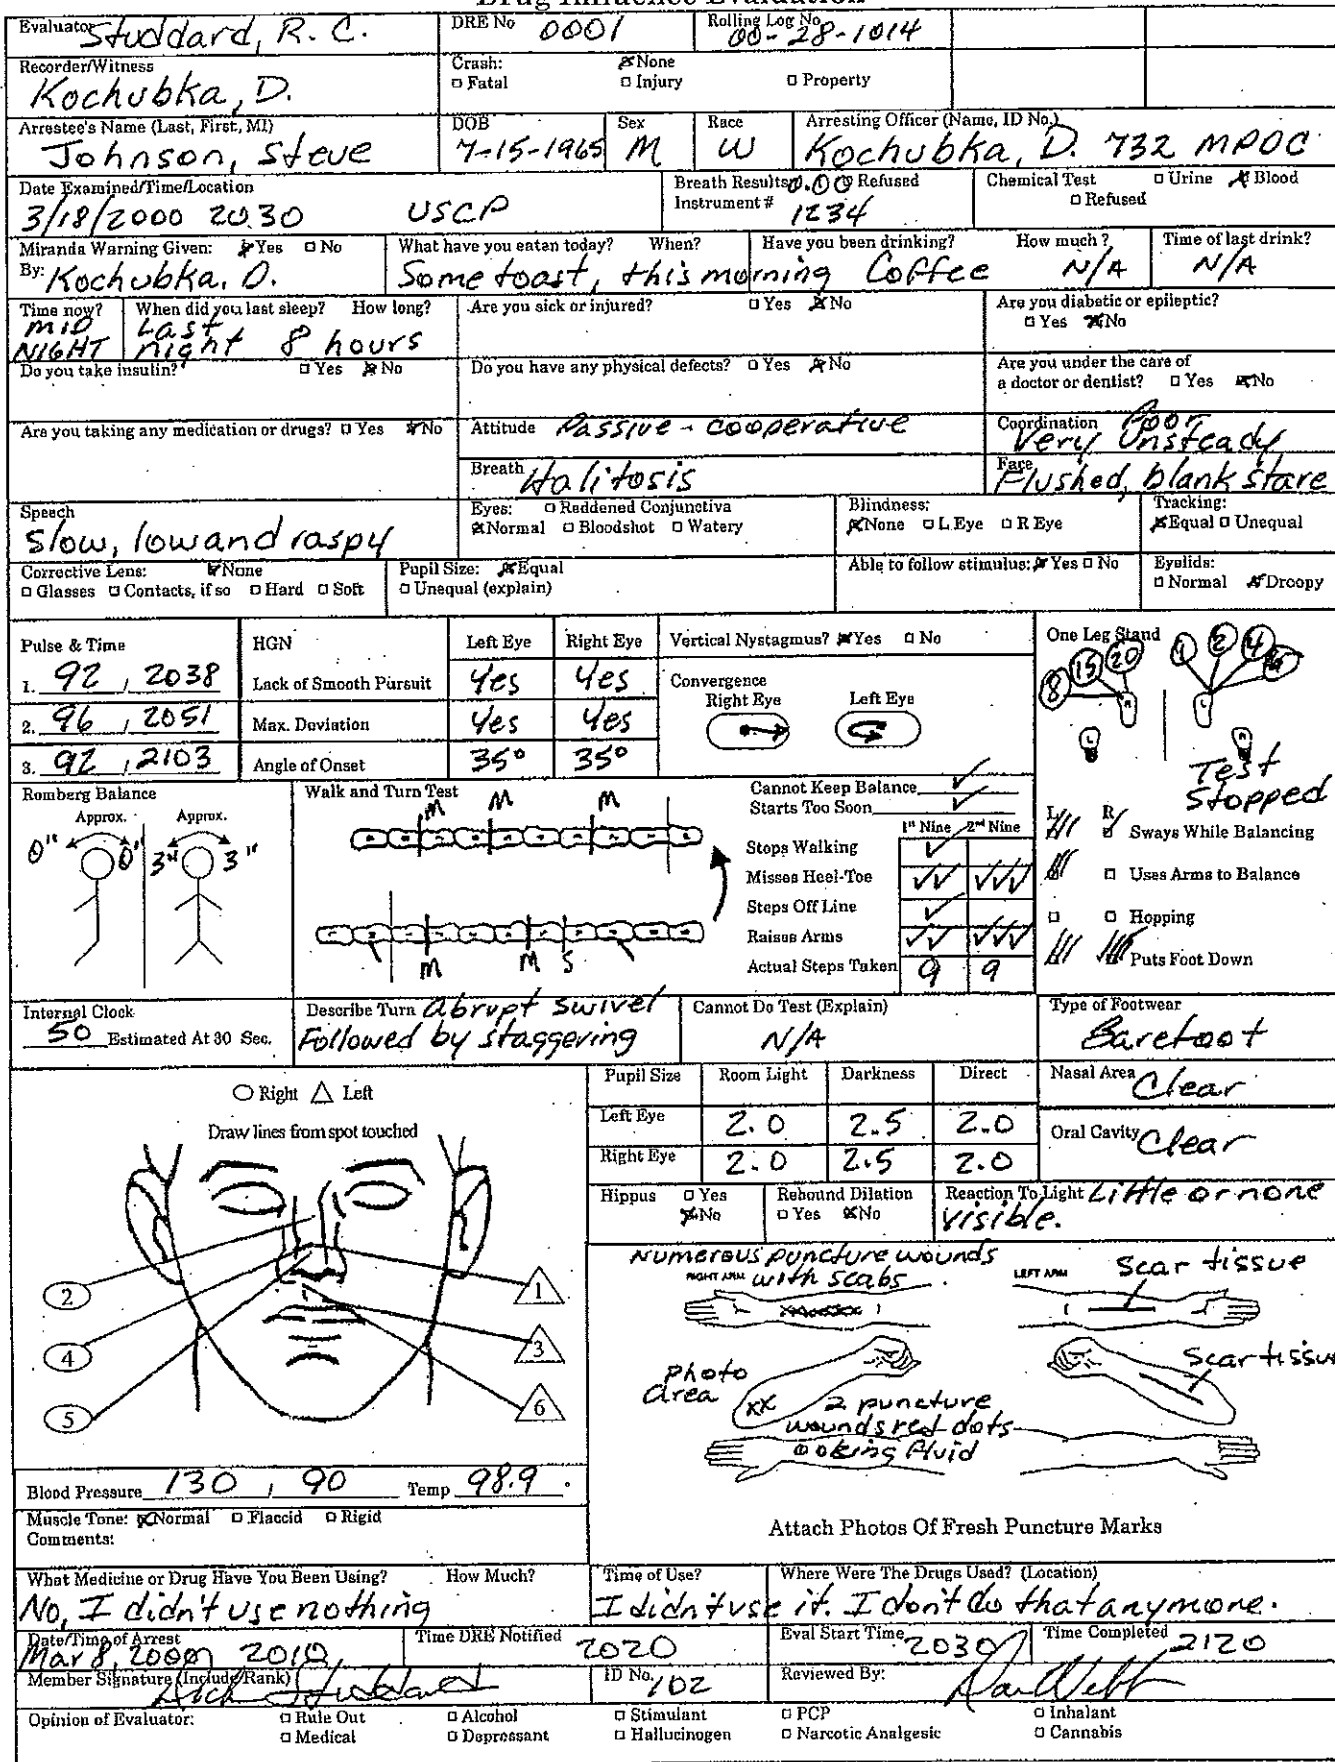 Drug Influence Evaluation
Evaluator Studdard, R. C.
DRE No 0001
Rolling Log No 00-28-1014
Recorder/Witness
Kochubka, D.
Crash: None
Fatal Injury Property
Arrestee's Name (Last, First, MI)
Johnson, Steve
DOB
7-15-1965
Sex
M
Race
W
Arresting Officer (Name, ID No.)
Kochubka, D. 732 MPDC
Date Examined/Time/Location
3/18/2000 2030 USCP
Breath Results 0.00 Refused
Instrument # 1234
Chemical Test Urine Blood
Refused
Miranda Warning Given: Yes No
By: Kochubka, D.
What have you eaten today? When?
Some toast, this morning
Have you been drinking?
Coffee
How much?
N/A
Time of last drink?
N/A
Time now?
MID
NIGHT
When did you last sleep? How long?
Last
night 8 hours
Are you sick or injured? Yes No
Are you diabetic or epileptic?
Yes No
Do you take insulin? Yes No
Do you have any physical defects? Yes No
Are you under the care of
a doctor or dentist? Yes No
Are you taking any medication or drugs? Yes No
Attitude Passive - cooperative
Coordination Poor
Very Unsteady
Breath Halitosis
Face
Flushed, blank stare
Speech
Slow, low and raspy
Eyes: Reddened Conjunctiva
Normal Bloodshot Watery
Blindness:
None L Eye R Eye
Tracking:
Equal Unequal
Corrective Lens: None
Glasses Contacts, if so Hard Soft
Pupil Size: Equal
Unequal (explain)
Able to follow stimulus: Yes No
Eyelids:
Normal Droopy
Pulse & Time
1. 92 , 2038
2. 96 , 2051
3. 92 , 2103
HGN Left Eye Right Eye
Lack of Smooth Pursuit Yes Yes
Max. Deviation Yes Yes
Angle of Onset 35° 35°
Vertical Nystagmus? Yes No
Convergence
Right Eye Left Eye
One Leg Stand
8 15 20 1 2 4
L R
R L
Test
Stopped
L R
Sways While Balancing
Uses Arms to Balance
Hopping
Puts Foot Down
Romberg Balance
Approx. Approx.
0" 0" 3" 3"
Walk and Turn Test
M M M
M M S
Cannot Keep Balance
Starts Too Soon
1st Nine 2nd Nine
Stops Walking
Misses Heel-Toe
Steps Off Line
Raises Arms
Actual Steps Taken 9 9
Internal Clock
50 Estimated At 30 Sec.
Describe Turn Abrupt swivel
Followed by staggering
Cannot Do Test (Explain)
N/A
Type of Footwear
Barefoot
Right Left
Draw lines from spot touched
2 1
4 3
5 6
Pupil Size Room Light Darkness Direct
Left Eye 2.0 2.5 2.0
Right Eye 2.0 2.5 2.0
Nasal Area Clear
Oral Cavity Clear
Hippus Yes
No
Rebound Dilation
Yes No
Reaction To Light Little or none
visible.
Numerous puncture wounds
RIGHT ARM with scabs
LEFT ARM Scar tissue
Scar tissue
Photo
area
XX 2 puncture
wounds red dots
ooking fluid
Attach Photos Of Fresh Puncture Marks
Blood Pressure 130 , 90 Temp 98.9
Muscle Tone: Normal Flaccid Rigid
Comments:
What Medicine or Drug Have You Been Using? How Much?
No, I didn't use nothing
Time of Use? Where Were The Drugs Used? (Location)
I didn't use it. I don't do that anymore.
Date/Time of Arrest
Mar 8, 2000 2010
Time DRE Notified
2020
Eval Start Time 2030
Time Completed 2120
Member Signature (Include Rank)
ID No. 102
Reviewed By:
Opinion of Evaluator: Rule Out Alcohol Stimulant PCP Inhalant
Medical Depressant Hallucinogen Narcotic Analgesic Cannabis